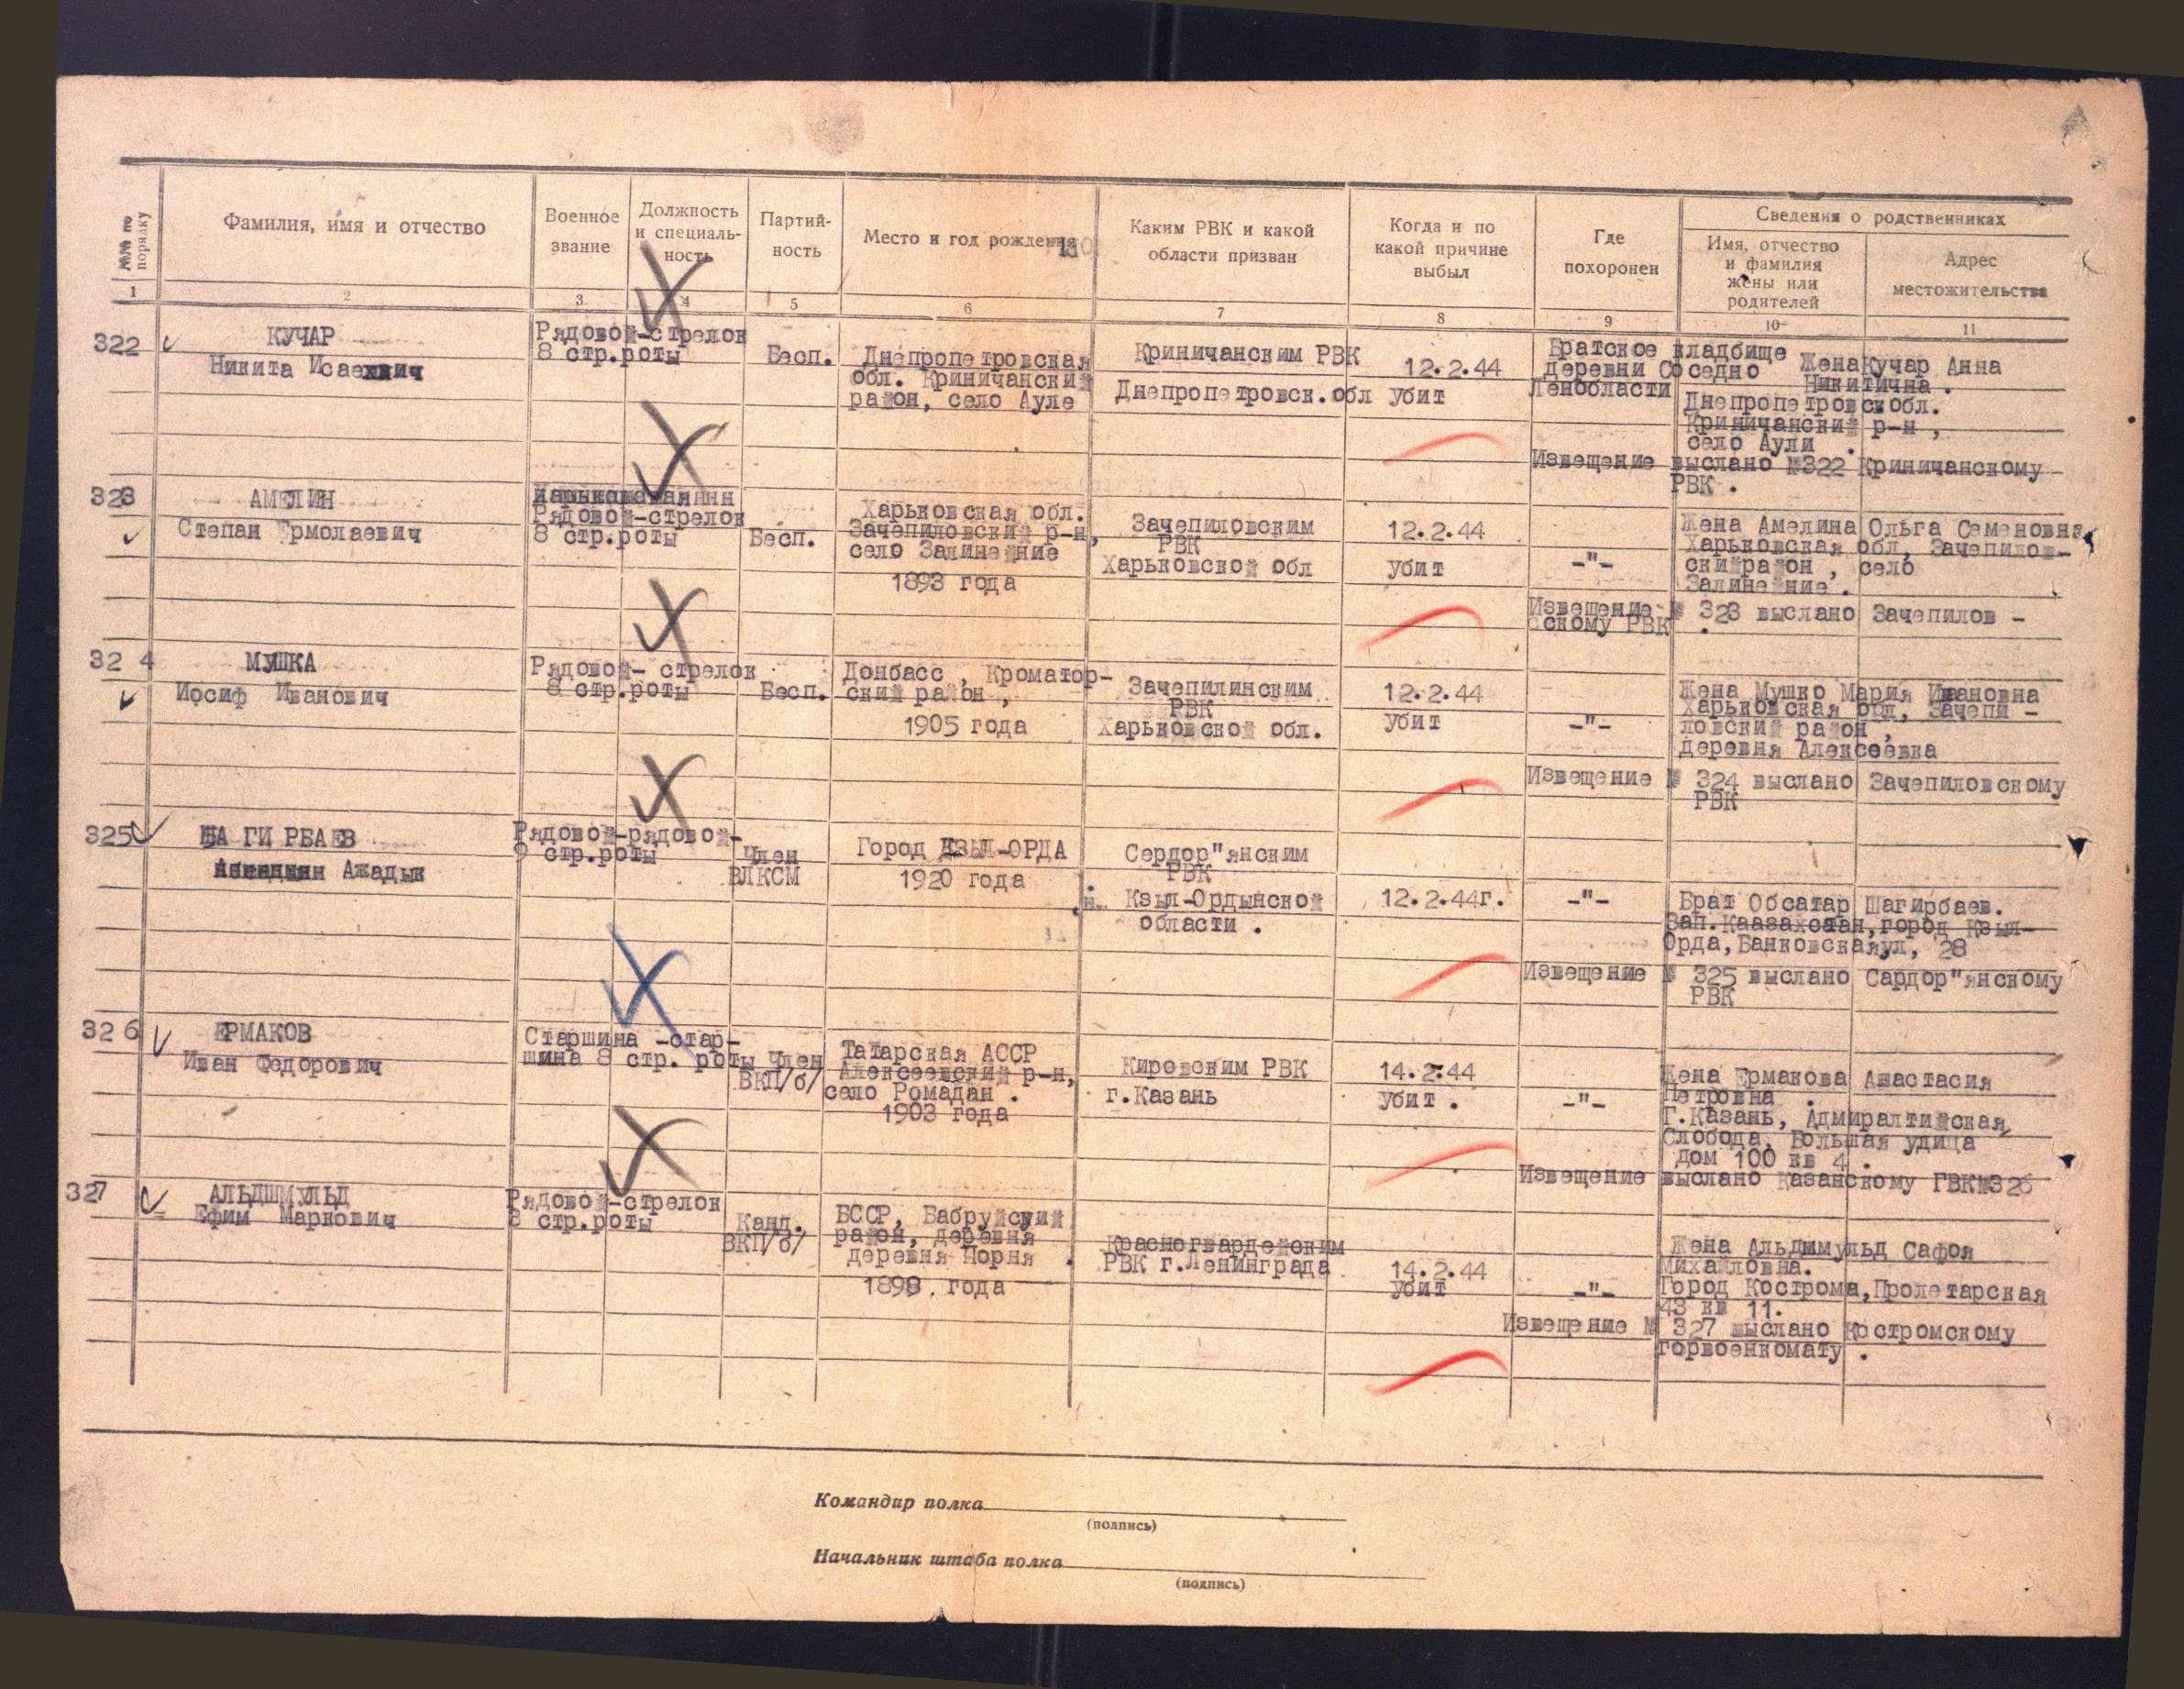 №№ по порядку
Фамилия, имя и отчество
Военное звание
Должность и специаль-
ность
Партий-
ность
Место и год рождения
Каким РВК и какой
области призван
Когда и по
какой причине
выбыл
Где
похоронен
Сведения о родственниках
Имя, отчество
и фамилия
жены или
родителей
Адрес
местожительства
1 2 3 4 5 6 7 8 9 10 11
322
КУЧАР
Никита Исаевич
Рядовой-стрелок
8 стр.роты
Бесп.
Днепропетровская
обл. Криничанский
район, село Ауле
Криничанским РВК
Днепропетровск.обл
12.2.44
убит
Братское кладбище
деревни Соседно
Ленобласти
Жена Кучар Анна
Никитична .
Днепропетровскобл.
Криничанский р-н ,
село Аули .
Извещение выслано №322 Криничанскому
РВК .
323
АМЕЛИН
Степан Ермолаевич
Рядовой-стрелок
8 стр.роты
Бесп.
Харьковская обл.
Зачепиловский р-н,
село Залинейние
1893 года
Зачепиловским
РВК
Харьковской обл
12.2.44
убит
-"-
Жена Амелина Ольга Семеновна
Харьковская обл, Зачепилов-
скийрайон , село
Залинейние .
Извещение № 323 выслано Зачепилов -
скому РВК .
324
МУШКА
Иосиф Иванович
Рядовой- стрелок
8 стр.роты
Бесп.
Донбасс , Кроматор-
ский район ,
1905 года
Зачепилинским
РВК
Харьковской обл.
12.2.44
убит
-"-
Жена Мушко Мария Ивановна
Харьковская обл, Зачепи -
ловский район ,
деревня Алексеевка
Извещение № 324 выслано Зачепиловскому
РВК
325
ШАГИРБАЕВ
Ажадык
Рядовой-рядовой-
8 стр.роты
Член
ВЛКСМ
Город КЗЫЛ-ОРДА
1920 года
Сердор"янским
РВК
Кзыл-Ордынской
области .
12.2.44г.
-"-
Брат Обсатар Шагирбаев.
Зап.Каазахстан,город Кзыл-
Орда,Банковскаяул, 28
Извещение № 325 выслано Сардор"янскому
РВК
326
ЕРМАКОВ
Иван Федорович
Старшина -стар-
шина 8 стр. роты
Член
ВКП/б/
Татарская АССР
Алексеевский р-н,
село Ромадан .
1903 года
Кировским РВК
г.Казань
14.2.44
убит .
-"-
Жена Ермакова Анастасия
Петровна .
Г.Казань, Адмиралтийская
Слобода, Большая улица
дом 100 кв 4 .
Извещение выслано Казанскому ГВК№326
327
АЛЬДШМУЛЬД
Ефим Маркович
Рядовой-стрелок
8 стр.роты
Канд.
ВКП/б/
БССР, Бабруйский
район, деревня
деревня Порня .
1898. года
Красногвардейским
РВК г.Ленинграда
14.2.44
убит
-"-
Жена Альдшмульд Сафоя
Михайловна.
Город Кострома,Пролетарская
43 кв 11.
Извещение № 327 выслано Костромскому
горвоенкомату .
Командир полка
(подпись)
Начальник штаба полка
(подпись)